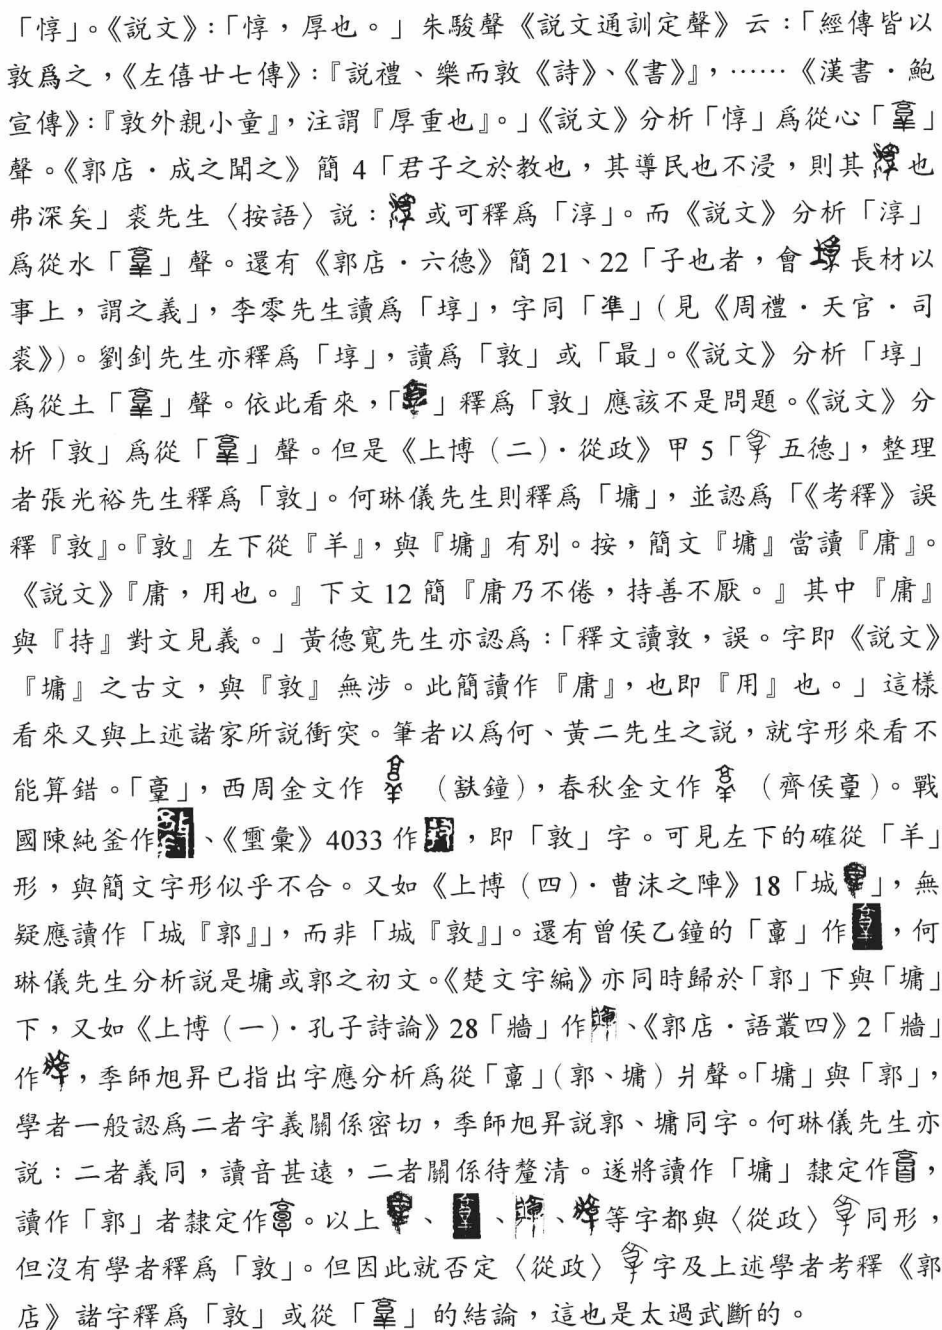 「惇」。《説文》：「惇，厚也。」朱駿聲《説文通訓定聲》云：「經傳皆以
敦爲之，《左僖廿七傳》：『説禮、樂而敦《詩》、《書》』，……《漢書·鮑
宣傳》：『敦外親小童』，注謂『厚重也』。」《説文》分析「惇」爲從心「𦎫」
聲。《郭店·成之聞之》簡4「君子之於教也，其導民也不浸，則其也
弗深矣」裘先生〈按語〉説：或可釋爲「淳」。而《説文》分析「淳」
爲從水「𦎫」聲。還有《郭店·六德》簡21、22「子也者，會長材以
事上，謂之義」，李零先生讀爲「埻」，字同「準」（見《周禮·天官·司
裘》）。劉釗先生亦釋爲「埻」，讀爲「敦」或「最」。《説文》分析「埻」
爲從土「𦎫」聲。依此看來，「」釋爲「敦」應該不是問題。《説文》分
析「敦」爲從「𦎫」聲。但是《上博（二）·從政》甲5「五德」，整理
者張光裕先生釋爲「敦」。何琳儀先生則釋爲「墉」，並認爲「《考釋》誤
釋『敦』。『敦』左下從『羊』，與『墉』有別。按，簡文『墉』當讀『庸』。
《説文》『庸，用也。』下文12簡『庸乃不倦，持善不厭。』其中『庸』
與『持』對文見義。」黃德寬先生亦認爲：「釋文讀敦，誤。字即《説文》
『墉』之古文，與『敦』無涉。此簡讀作『庸』，也即『用』也。」這樣
看來又與上述諸家所説衝突。筆者以爲何、黃二先生之説，就字形來看不
能算錯。「」，西周金文作（㝬鐘），春秋金文作（齊侯）。戰
國陳純釜作、《璽彙》4033作，即「敦」字。可見左下的確從「羊」
形，與簡文字形似乎不合。又如《上博（四）·曹沫之陣》18「城」，無
疑應讀作「城『郭』」，而非「城『敦』」。還有曾侯乙鐘的「」作，何
琳儀先生分析説是墉或郭之初文。《楚文字編》亦同時歸於「郭」下與「墉」
下，又如《上博（一）·孔子詩論》28「牆」作、《郭店·語叢四》2「牆」
作，季師旭昇已指出字應分析爲從「」（郭、墉）爿聲。「墉」與「郭」，
學者一般認爲二者字義關係密切，季師旭昇説郭、墉同字。何琳儀先生亦
説：二者義同，讀音甚遠，二者關係待釐清。遂將讀作「墉」隸定作，
讀作「郭」者隸定作。以上、、、等字都與〈從政〉同形，
但沒有學者釋爲「敦」。但因此就否定〈從政〉字及上述學者考釋《郭
店》諸字釋爲「敦」或從「𦎫」的結論，這也是太過武斷的。